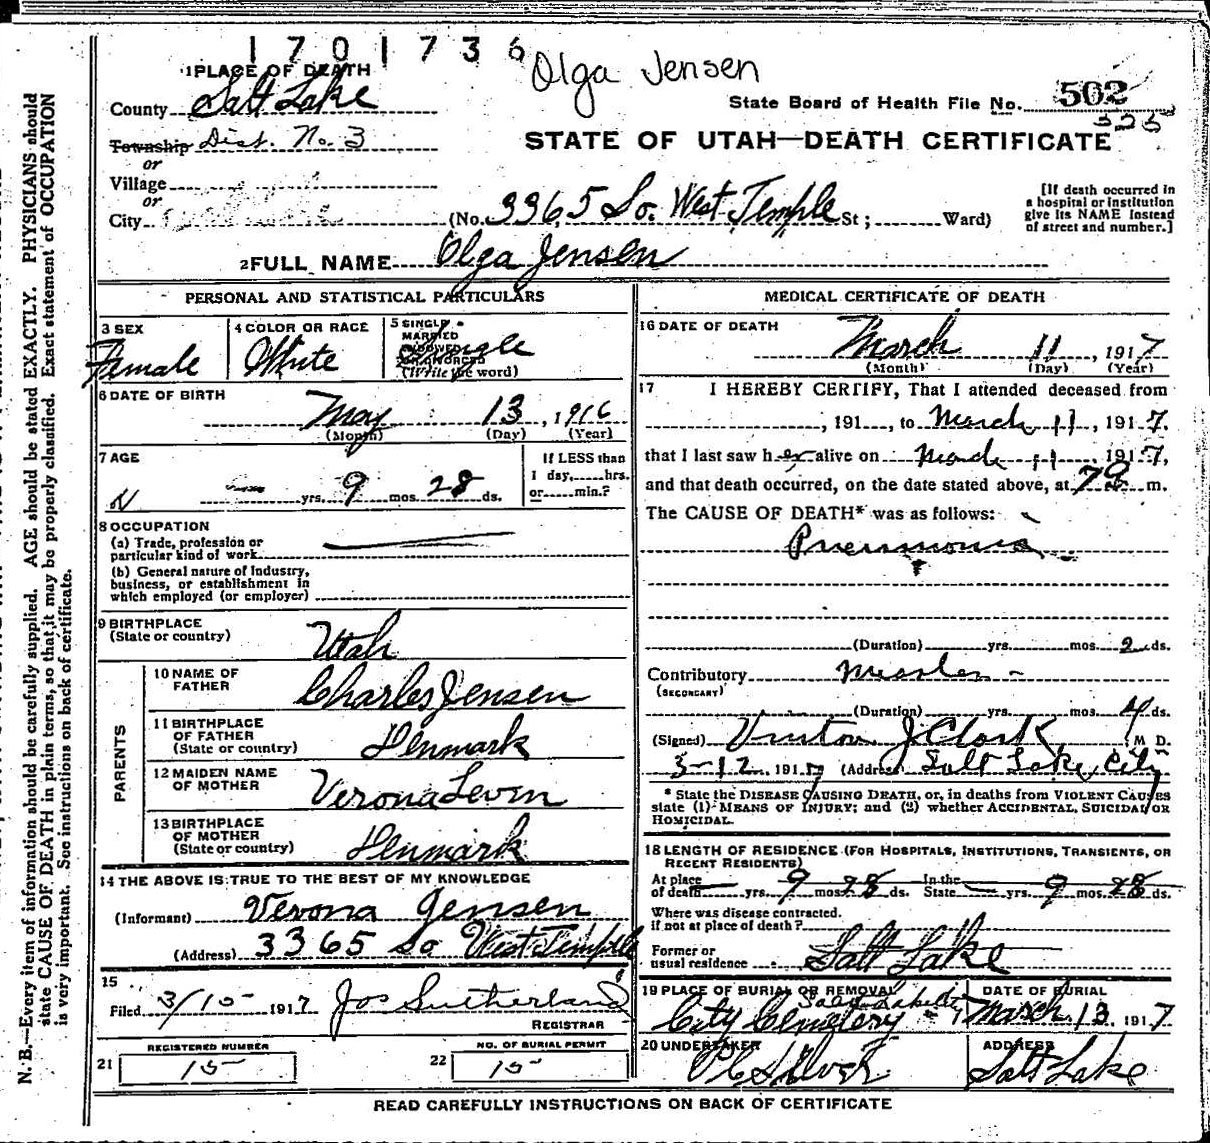 1701736
Olga Jensen
1 PLACE OF DEATH
County Salt Lake
State Board of Health File No. 502
325
Township Dist. No. 3
STATE OF UTAH—DEATH CERTIFICATE
or
Village
or
City (No. 3365 So. West Temple St; Ward)
[If death occurred in
a hospital or institution
give its NAME instead
of street and number.]
2 FULL NAME Olga Jensen
PERSONAL AND STATISTICAL PARTICULARS
3 SEX
Female
4 COLOR OR RACE
White
5 SINGLE
MARRIED
WIDOWED
OR DIVORCED
(Write the word)
Single
6 DATE OF BIRTH
May 13, 1916
(Month) (Day) (Year)
7 AGE
yrs. 9 mos. 28 ds.
If LESS than
1 day, hrs.
or min.?
8 OCCUPATION
(a) Trade, profession or
particular kind of work
(b) General nature of Industry,
business, or establishment in
which employed (or employer)
9 BIRTHPLACE
(State or country) Utah
PARENTS
10 NAME OF
FATHER Charles Jensen
11 BIRTHPLACE
OF FATHER
(State or country) Denmark
12 MAIDEN NAME
OF MOTHER Verona Leven
13 BIRTHPLACE
OF MOTHER
(State or country) Denmark
14 THE ABOVE IS TRUE TO THE BEST OF MY KNOWLEDGE
(Informant) Verona Jensen
(Address) 3365 So West Temple
15
Filed 3/15 1917 Jos Sutherland
REGISTRAR
REGISTERED NUMBER
21 15
NO. OF BURIAL PERMIT
22 15
MEDICAL CERTIFICATE OF DEATH
16 DATE OF DEATH
March 11, 1917
(Month) (Day) (Year)
17 I HEREBY CERTIFY, That I attended deceased from
, 191 , to March 11, 1917.
that I last saw her alive on March 11 1917,
and that death occurred, on the date stated above, at m.
The CAUSE OF DEATH* was as follows:
Pneumonia
(Duration) yrs. mos. 2 ds.
Contributory Measles
(SECONDARY)
(Duration) yrs. mos. 4 ds.
(Signed) J Clark M D.
3-12 1917 (Address) Salt Lake City
* State the DISEASE CAUSING DEATH, or, in deaths from VIOLENT CAUSES
state (1) MEANS OF INJURY; and (2) whether ACCIDENTAL, SUICIDAL OR
HOMICIDAL.
18 LENGTH OF RESIDENCE (FOR HOSPITALS, INSTITUTIONS, TRANSIENTS, OR
RECENT RESIDENTS)
At place In the
of death yrs. 9 mos 28 ds. State yrs. 9 mos 28 ds.
Where was disease contracted.
if not at place of death?
Former or
usual residence Salt Lake
19 PLACE OF BURIAL OR REMOVAL
Salt Lake
City Cemetery
DATE OF BURIAL
March 13 1917
20 UNDERTAKER
ADDRESS
Salt Lake
READ CAREFULLY INSTRUCTIONS ON BACK OF CERTIFICATE
N. B.—Every item of information should be carefully supplied. AGE should be stated EXACTLY. PHYSICIANS should
state CAUSE OF DEATH in plain terms, so that it may be properly classified. Exact statement of OCCUPATION
is very important. See instructions on back of certificate.